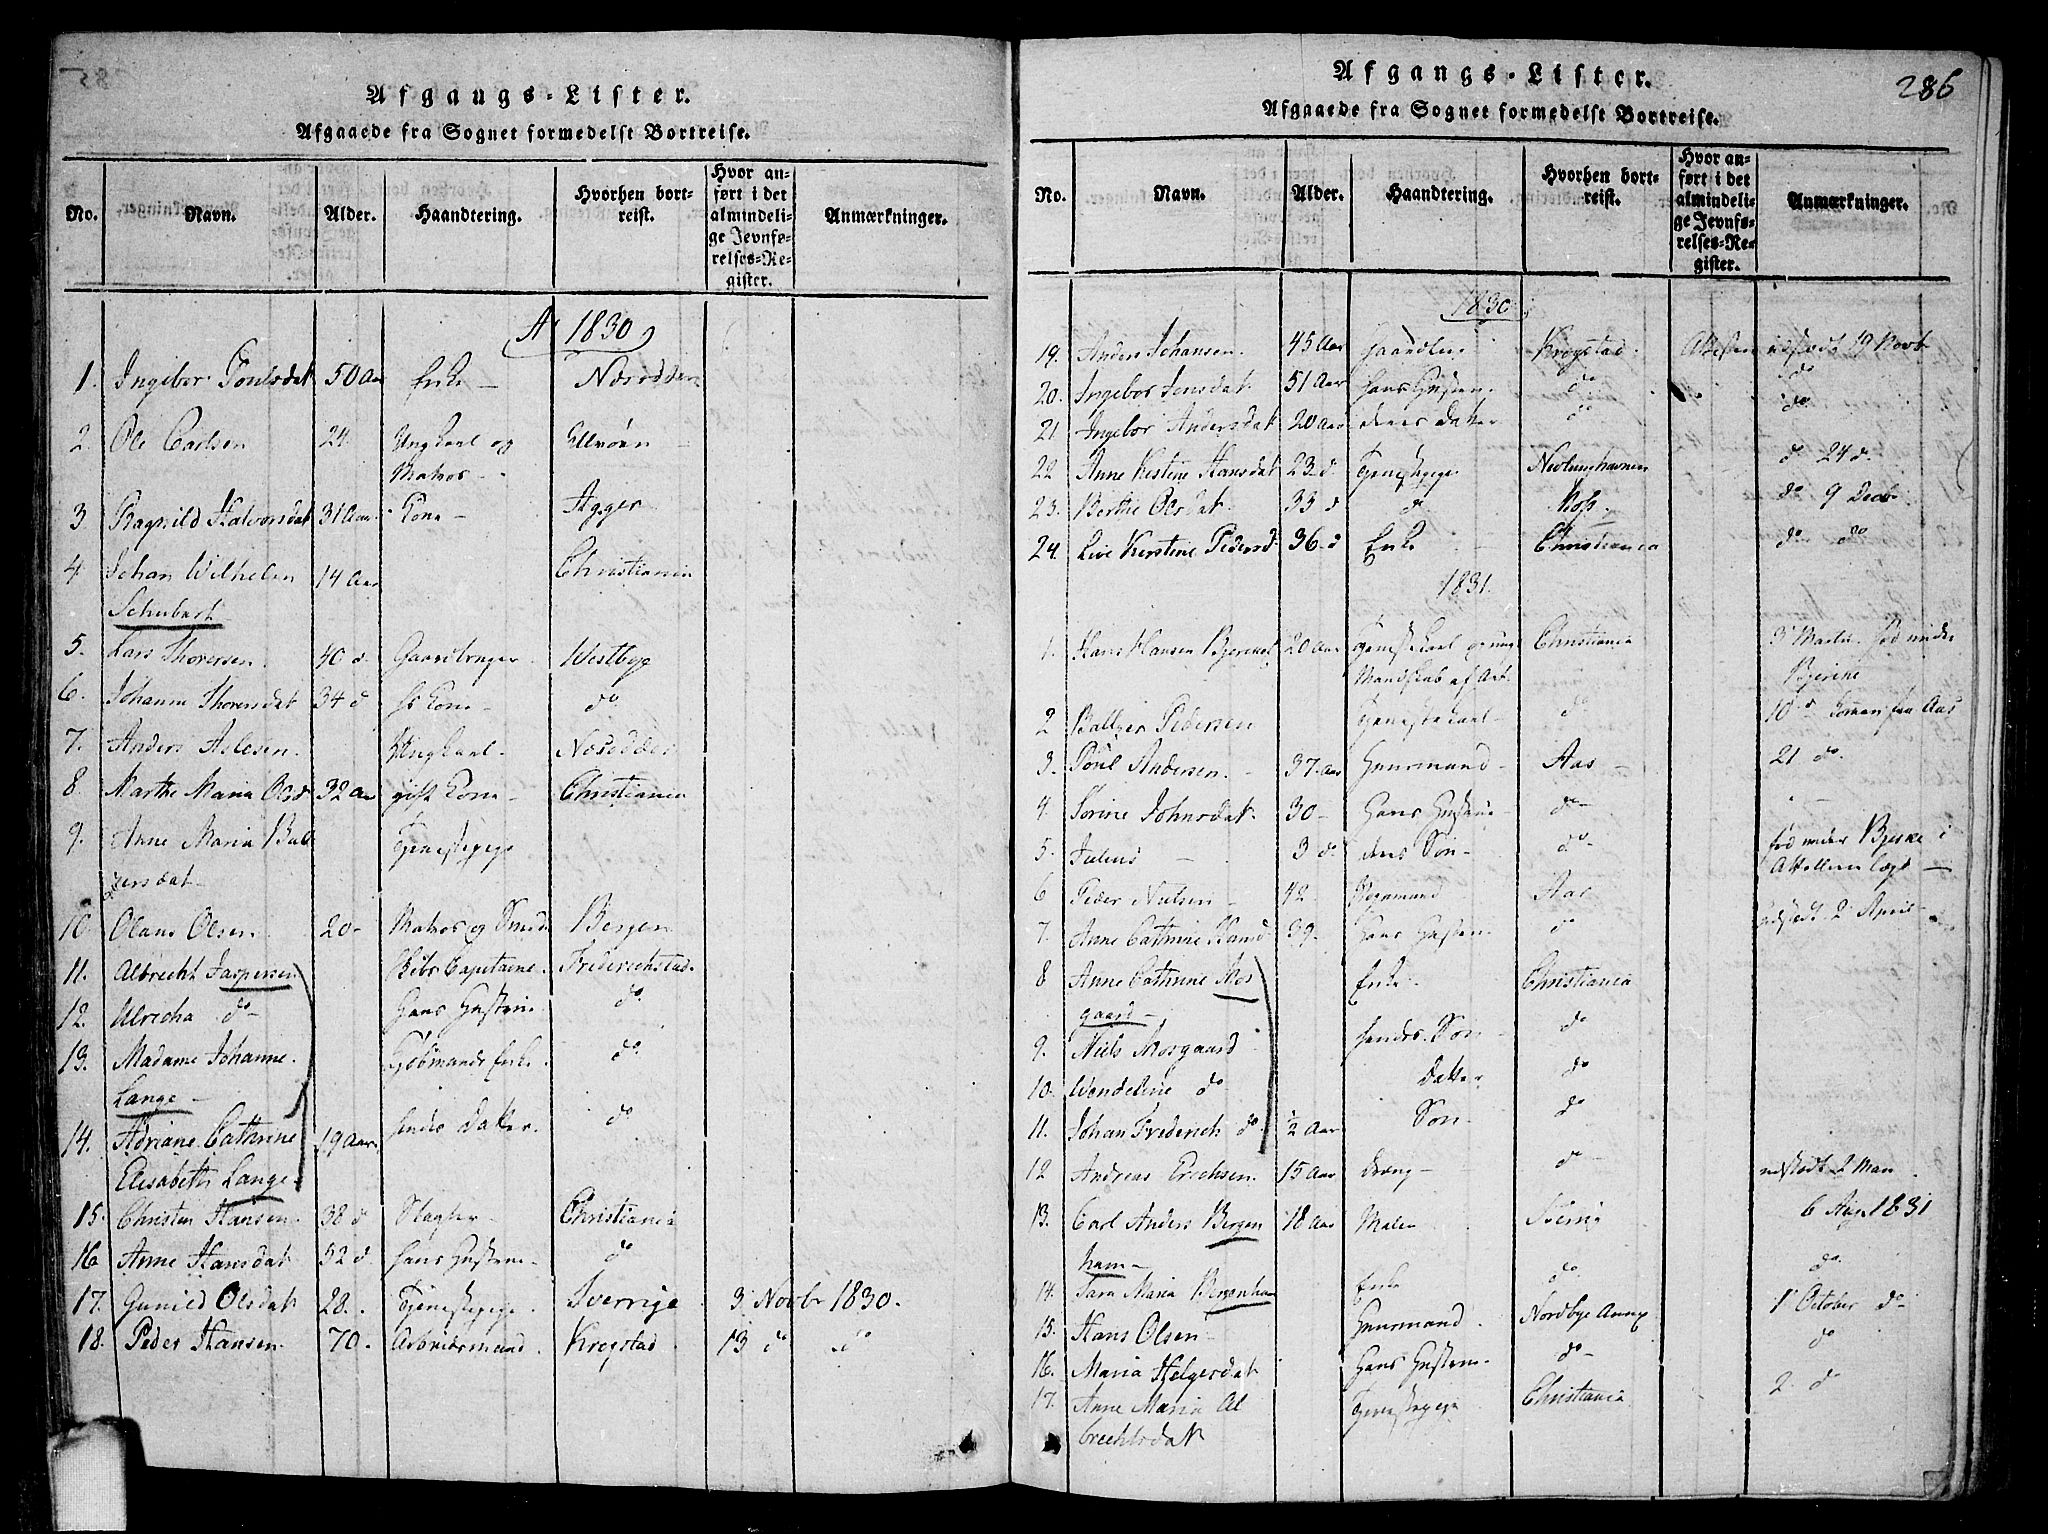 Afgangs-Lister.
Afgaaede fra Sognet formedelst Bortreise.
No. Navn. Alder. Haandtering. Hvorhen bortreist. Hvor anført i det almindelige Jevnførelses-Register. Anmærkninger.
A 1830
1. Ingebor Poulsdat 50 Aar Enke - Næsodden
2. Ole Carlsen 24. Ungkarl og
Matros -
3 Ragnild Halvorsdat 31 Aar Kone - Agger
4. Johan Wilhelm 14 Aar Christiania
Schubart
5. Lars Thoresen 40 d. Gaardbruger Westbye
6. Johanne Thoresdat 34 d Kone - do
7. Anders Aslesen Ungkarl - Næsodden
8. Marthe Maria Olsd 32 Aar gift Kone - Christiania
9. Anne Maria Bal Tjenestepige
zersdat
10. Olaus Olsen 20 - Matros og Bergen
11. Albrecht Jaspersen Capitaine Frederichstad
12. Ulricha do - Hans Hustrue do
13. Madame Johanne Enke do
Lange -
14. Adriane Cathrine 19 Aar hendes Datter do
Elisabeth Lange
15. Christen Hansen 38 d Slagter Christiania
16 Anne Hansdat 52 d. Hans Hustrue - do
17. Gunild Olsdat 28. Tjenestepige Sverrige 3 Novbr 1830.
18. Peder Hansen 70. Arbeidsmand Krogstad 13 d do
286
Afgangs-Lister.
Afgaaede fra Sognet formedelst Bortreise.
No. Navn. Alder. Haandtering. Hvorhen bortreist. Hvor anført i det almindelige Jevnførelses-Register. Anmærkninger.
1830
19. Anders Johansen 45 Aar Krogstad Attesten udstædt 19 Novb
20. Ingebor Jensdat 51 Aar Hans Hustrue do do
21 Ingebor Andersdat 20 Aar deres Datter do do
22 Anne Kirstine Hansdat 23 d. Tjenestepige do 24 d.
23. Berthe Olsdat 33 d d. Moss do 9 Decbr
24. Live Kirstine Pedersd 36 d Enke Christiania do do
1831.
1. Hans Hansen Bjerke 20 Aar Tjenestekarl og Christiania 3 Martii. Fød under
Mandskab af Art. Bjerke
2 Baltzer Pedersen Tjenestekarl do 10 d Kommen fra Aas
3. Poul Andersen 37 Aar Huusmand Aas - 21 do
4. Sorine Johnsdat. 30 - Hans Hustrue do -
5. Julius - 3 d. deres Søn - do - fød under Bjerke i
6 Peder Nielsen - 42 Aas
7. Anne Cathrine Hansd 39. Hans Hustrue do Udstædt 2 April
8 Anne Cathrine Mos Enke Christiania
gaard -
9. Niels Mosgaard hendes Søn do
10. Wendeline do Datter do
11. Johan Frederich do ½ Aar Søn do
12 Andreas Erichsen 15 Aar dreng - do - udstædt 2 Mai
13. Carl Anders Bergen 18 Aar Maler Sverrig 6 Aug 1831
ham -
14. Sara Maria Bergenham Enke do do
15. Hans Olsen Huusmand. Nordbye Annex 1 October do
16. Maria Helgesdat Hans Hustrue do - do
17. Anne Maria Al Tjenestepige Christiania 2 do
brechtsdat